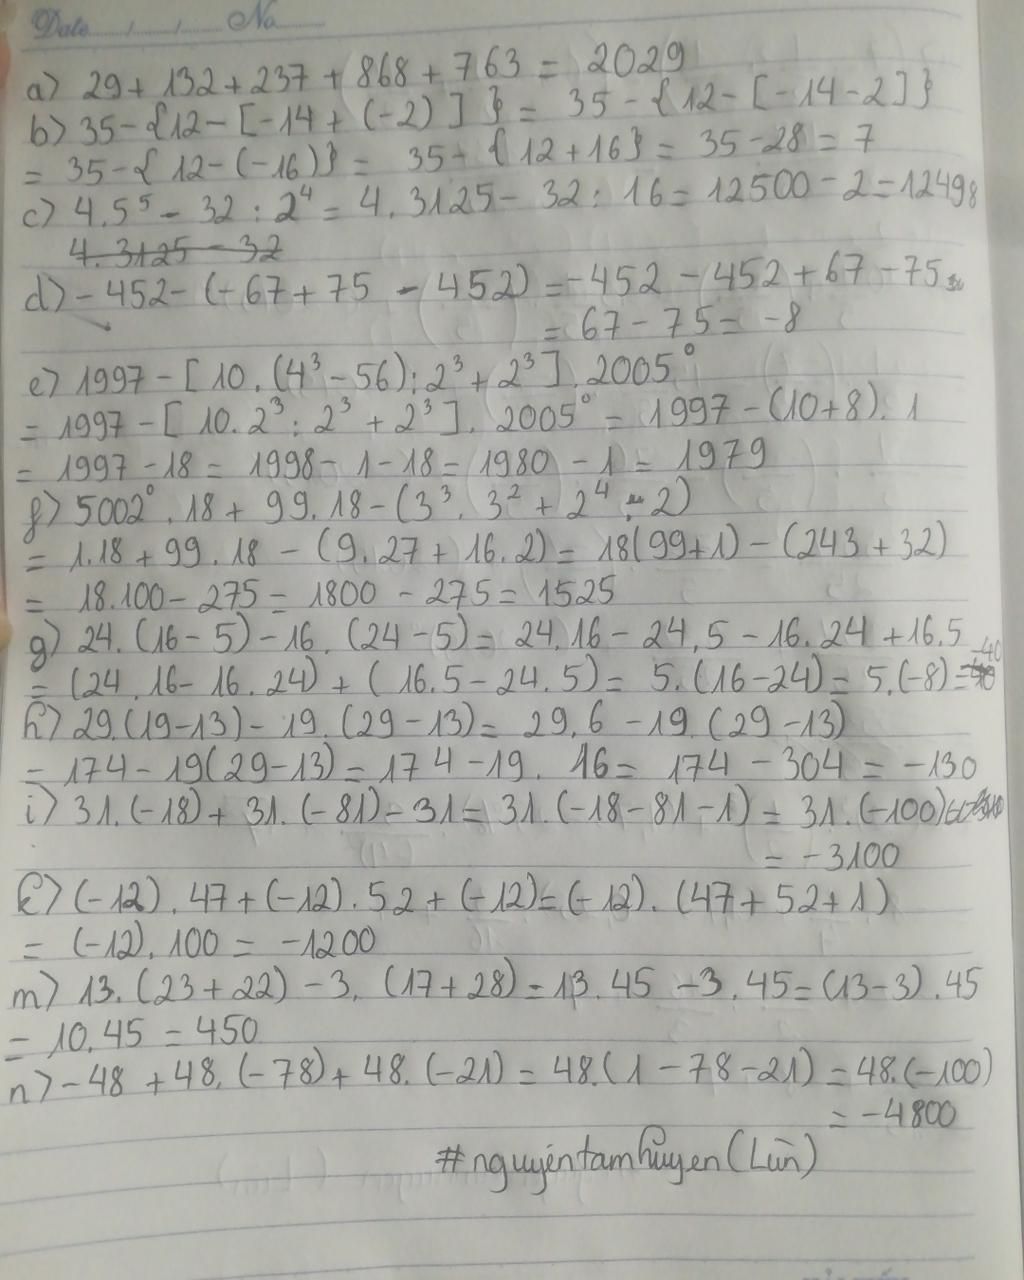 Date..../..../.... No............
a) 29 + 132 + 237 + 868 + 763 = 2029
b) 35 - {12 - [-14 + (-2)]} = 35 - {12 - [-14 - 2]}
= 35 - {12 - (-16)} = 35 - {12 + 16} = 35 - 28 = 7
c) 4.5⁵ - 32 : 2⁴ = 4.3125 - 32 : 16 = 12500 - 2 = 12498
4.3125 - 32
d) - 452 - (-67 + 75 - 452) = -452 - 452 + 67 - 75
= 67 - 75 = -8
e) 1997 - [10.(4³ - 56) : 2³ + 2³]. 2005⁰
= 1997 - [10.2³ : 2³ + 2³]. 2005⁰ = 1997 - (10+8). 1
= 1997 - 18 = 1998 - 1 - 18 = 1980 - 1 = 1979
f) 5002⁰.18 + 99.18 - (3³. 3² + 2⁴ : 2)
= 1.18 + 99.18 - (9.27 + 16.2) = 18(99+1) - (243 + 32)
= 18.100 - 275 = 1800 - 275 = 1525
g) 24.(16 - 5) - 16.(24 - 5) = 24.16 - 24.5 - 16.24 + 16.5
= (24.16 - 16.24) + (16.5 - 24.5) = 5.(16 - 24) = 5.(-8) = -40
h) 29.(19-13) - 19.(29 - 13) = 29.6 - 19.(29 - 13)
= 174 - 19(29-13) = 174 - 19. 16 = 174 - 304 = -130
i) 31.(-18) + 31.(-81) - 31 = 31.(-18 - 81 - 1) = 31.(-100)
= -3100
k) (-12). 47 + (-12). 52 + (-12) = (-12). (47 + 52 + 1)
= (-12). 100 = -1200
m) 13.(23 + 22) - 3. (17 + 28) = 13.45 - 3.45 = (13-3).45
= 10.45 = 450
n) - 48 + 48.(-78) + 48.(-21) = 48.(1 - 78 - 21) = 48.(-100)
= -4800
#nguyéntamhuyen(Lùn)